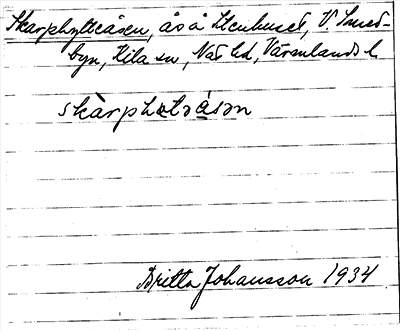 Skarphyttåsen, ås å Stenhuset, V. Smed-
byn, Kila sn, Näs hd, Värmlands l.
skàrphətəásən
Britta Johansson 1934